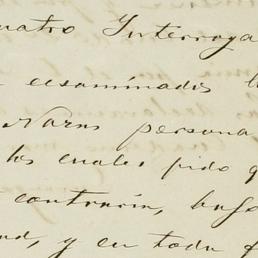 cuatro Interroga
examinados l
Nazus persona
los cuales pido q
contrario, bajo
ud, y en todo d